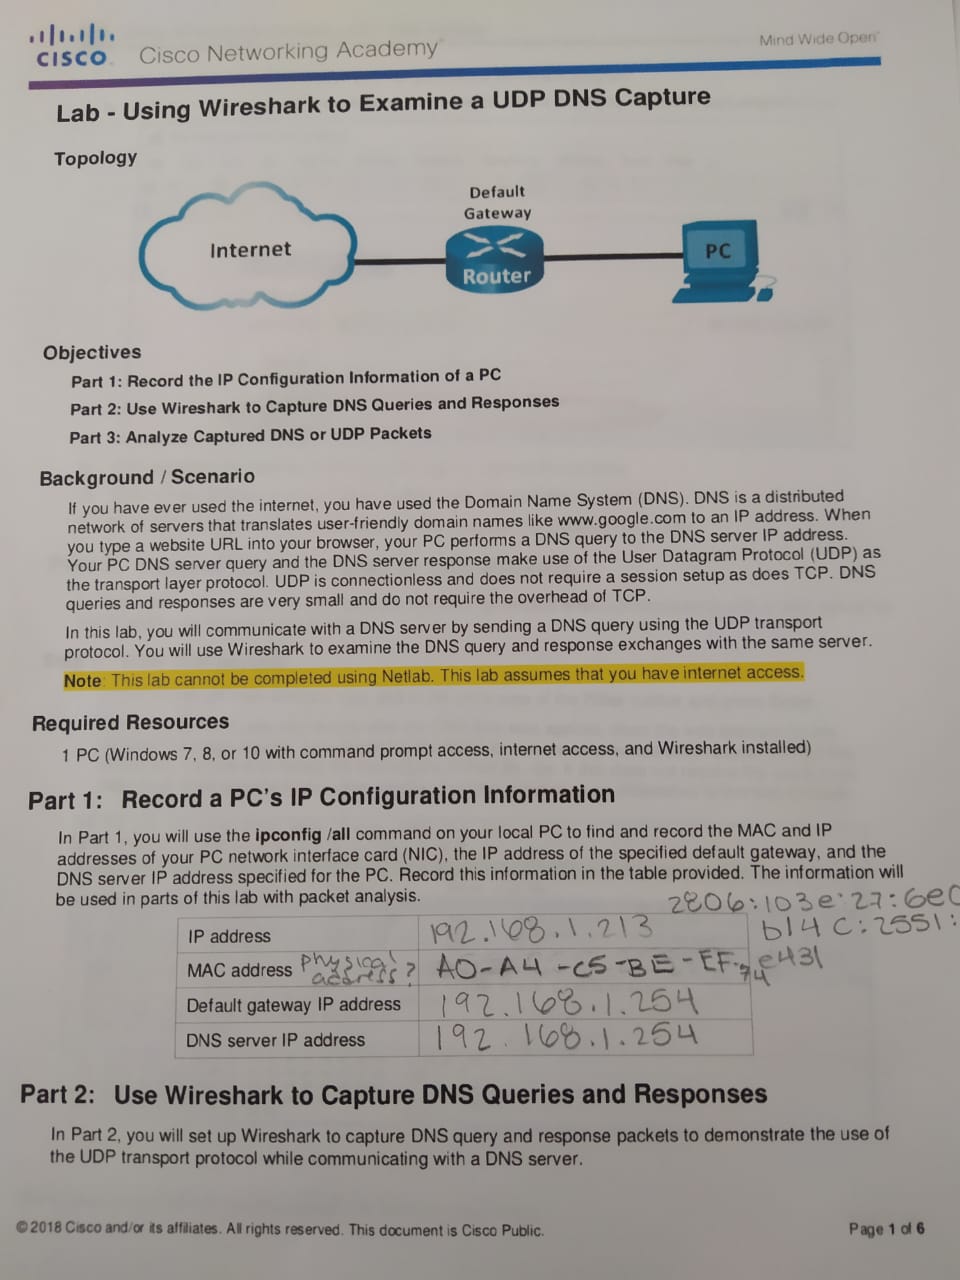 CISCO
Cisco Networking Academy
Mind Wide Open
Lab - Using Wireshark to Examine a UDP DNS Capture
Topology
Default
Gateway
Internet
Router
PC
Objectives
Part 1: Record the IP Configuration Information of a PC
Part 2: Use Wireshark to Capture DNS Queries and Responses
Part 3: Analyze Captured DNS or UDP Packets
Background / Scenario
If you have ever used the internet, you have used the Domain Name System (DNS). DNS is a distributed
network of servers that translates user-friendly domain names like www.google.com to an IP address. When
you type a website URL into your browser, your PC performs a DNS query to the DNS server IP address.
Your PC DNS server query and the DNS server response make use of the User Datagram Protocol (UDP) as
the transport layer protocol. UDP is connectionless and does not require a session setup as does TCP. DNS
queries and responses are very small and do not require the overhead of TCP.
In this lab, you will communicate with a DNS server by sending a DNS query using the UDP transport
protocol. You will use Wireshark to examine the DNS query and response exchanges with the same server.
Note: This lab cannot be completed using Netlab. This lab assumes that you have internet access.
Required Resources
1 PC (Windows 7, 8, or 10 with command prompt access, internet access, and Wireshark installed)
Part 1: Record a PC's IP Configuration Information
In Part 1, you will use the ipconfig /all command on your local PC to find and record the MAC and IP
addresses of your PC network interface card (NIC), the IP address of the specified default gateway, and the
DNS server IP address specified for the PC. Record this information in the table provided. The information will
be used in parts of this lab with packet analysis.
2806:103e:27:6e0
IP address 192.168.1.213 b14c:2551:
MAC address physical address? A0-A4-C5-BE-EF-74 e431
Default gateway IP address 192.168.1.254
DNS server IP address 192.168.1.254
Part 2: Use Wireshark to Capture DNS Queries and Responses
In Part 2, you will set up Wireshark to capture DNS query and response packets to demonstrate the use of
the UDP transport protocol while communicating with a DNS server.
© 2018 Cisco and/or its affiliates. All rights reserved. This document is Cisco Public.
Page 1 of 6